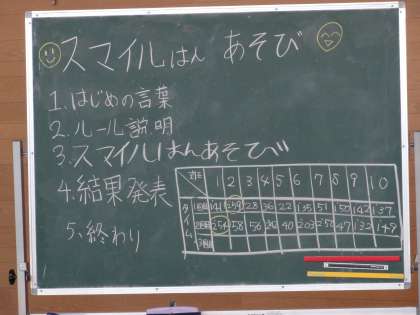 スマイルはん あそび
1.はじめの言葉
2.ルール説明
3.スマイルはんあそび
4.結果発表
5.終わり
1 2 3 4 5 6 7 8 9 10
タイム
1回目 141 259 28 36 22 135 51 150 142 137
2回目 254 58 56 36 40 203 250 47 132 149
3回目